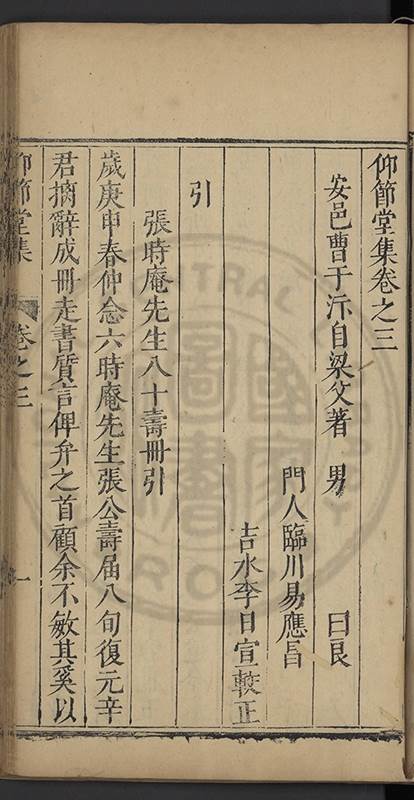 仰節堂集卷之三
安邑曹于汴自梁父著　男　曰良
門人臨川易應昌
吉水李日宣較正
引
張時庵先生八十壽冊引
歲庚申春仲念六時庵先生張公壽届八旬復元辛
君摛辭成冊走書質言俾弁之首顧余不敏其奚以
仰節堂集　卷之三　一